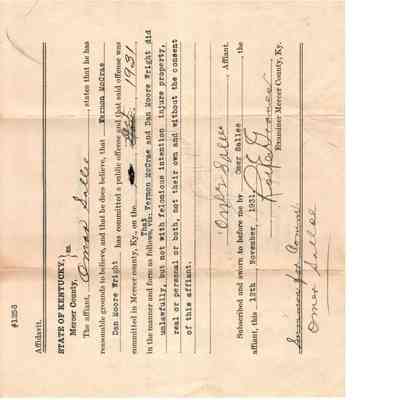 #125-8
Affidavit.
STATE OF KENTUCKY, } ss.
Mercer County,
The affiant, Omar Sallee, states that he has
reasonable grounds to believe, and that he does believe, that Vernon McCrae
Dan Moore Wright has committed a public offense and that said offense was
committed in Mercer county, Ky., on the Dec. 1931
in the manner and form as follows, viz: That Vernon McCrae and Dan Moore Wright did
unlawfully, but not with felonious intention injure property,
real or personal or both, not their own and without the consent
of this affiant.
Omer Sallee, Affiant.
Subscribed and sworn to before me by Omer Sallee, the
affiant, this 12th November, 1931.
Examiner Mercer County, Ky.
Summons for Comm.
Omer Sallee